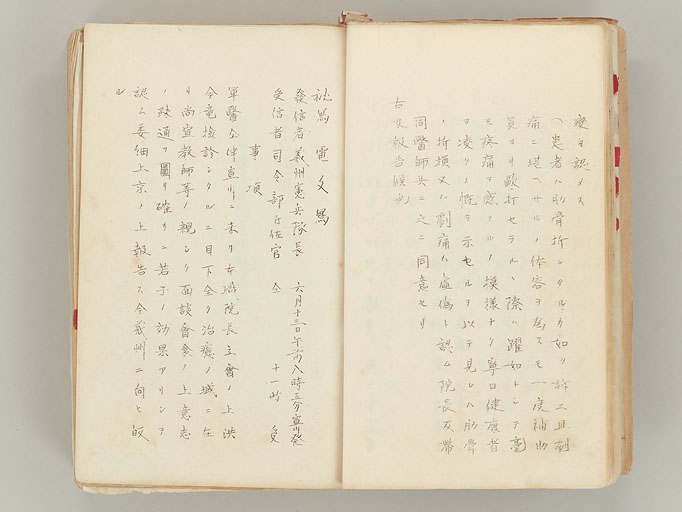 変ヲ認メス
(患者ハ肋骨折シタルカ如ク訴ヘ且劇
痛ニ堪ヘサルノ体容ヲ為スモ一度補助
員ヨリ殴打セラルヽ際ハ躍如トシテ毫
モ疼痛ヲ感スルノ模様ナク寧ロ健康者
ヲ凌クノ慨ヲ示セルヲ以テ見レハ肋骨
ノ折損又ハ劇痛ハ虚偽ト認ム院長及帯
同医師共ニ之ニ同意セリ
右及報告候也
秘寫 電文寫
發信者 義州憲兵隊長 六月十三日午前八時三分宣川發
受信者 司令部副官 仝 十一時 受
事項
軍醫ヲ伴宣川ニ来リ本職院長立會ノ上洪
今竜検診シタルニ目下全ク治癒ノ域ニ在
リ尚宣教師等ノ親シク面談會食ノ上意志
ノ疎通ヲ圖リ確カニ若干ノ効果アリシヲ
認ム委細上京ノ上報告ス今義州ニ向ヒ皈
ル